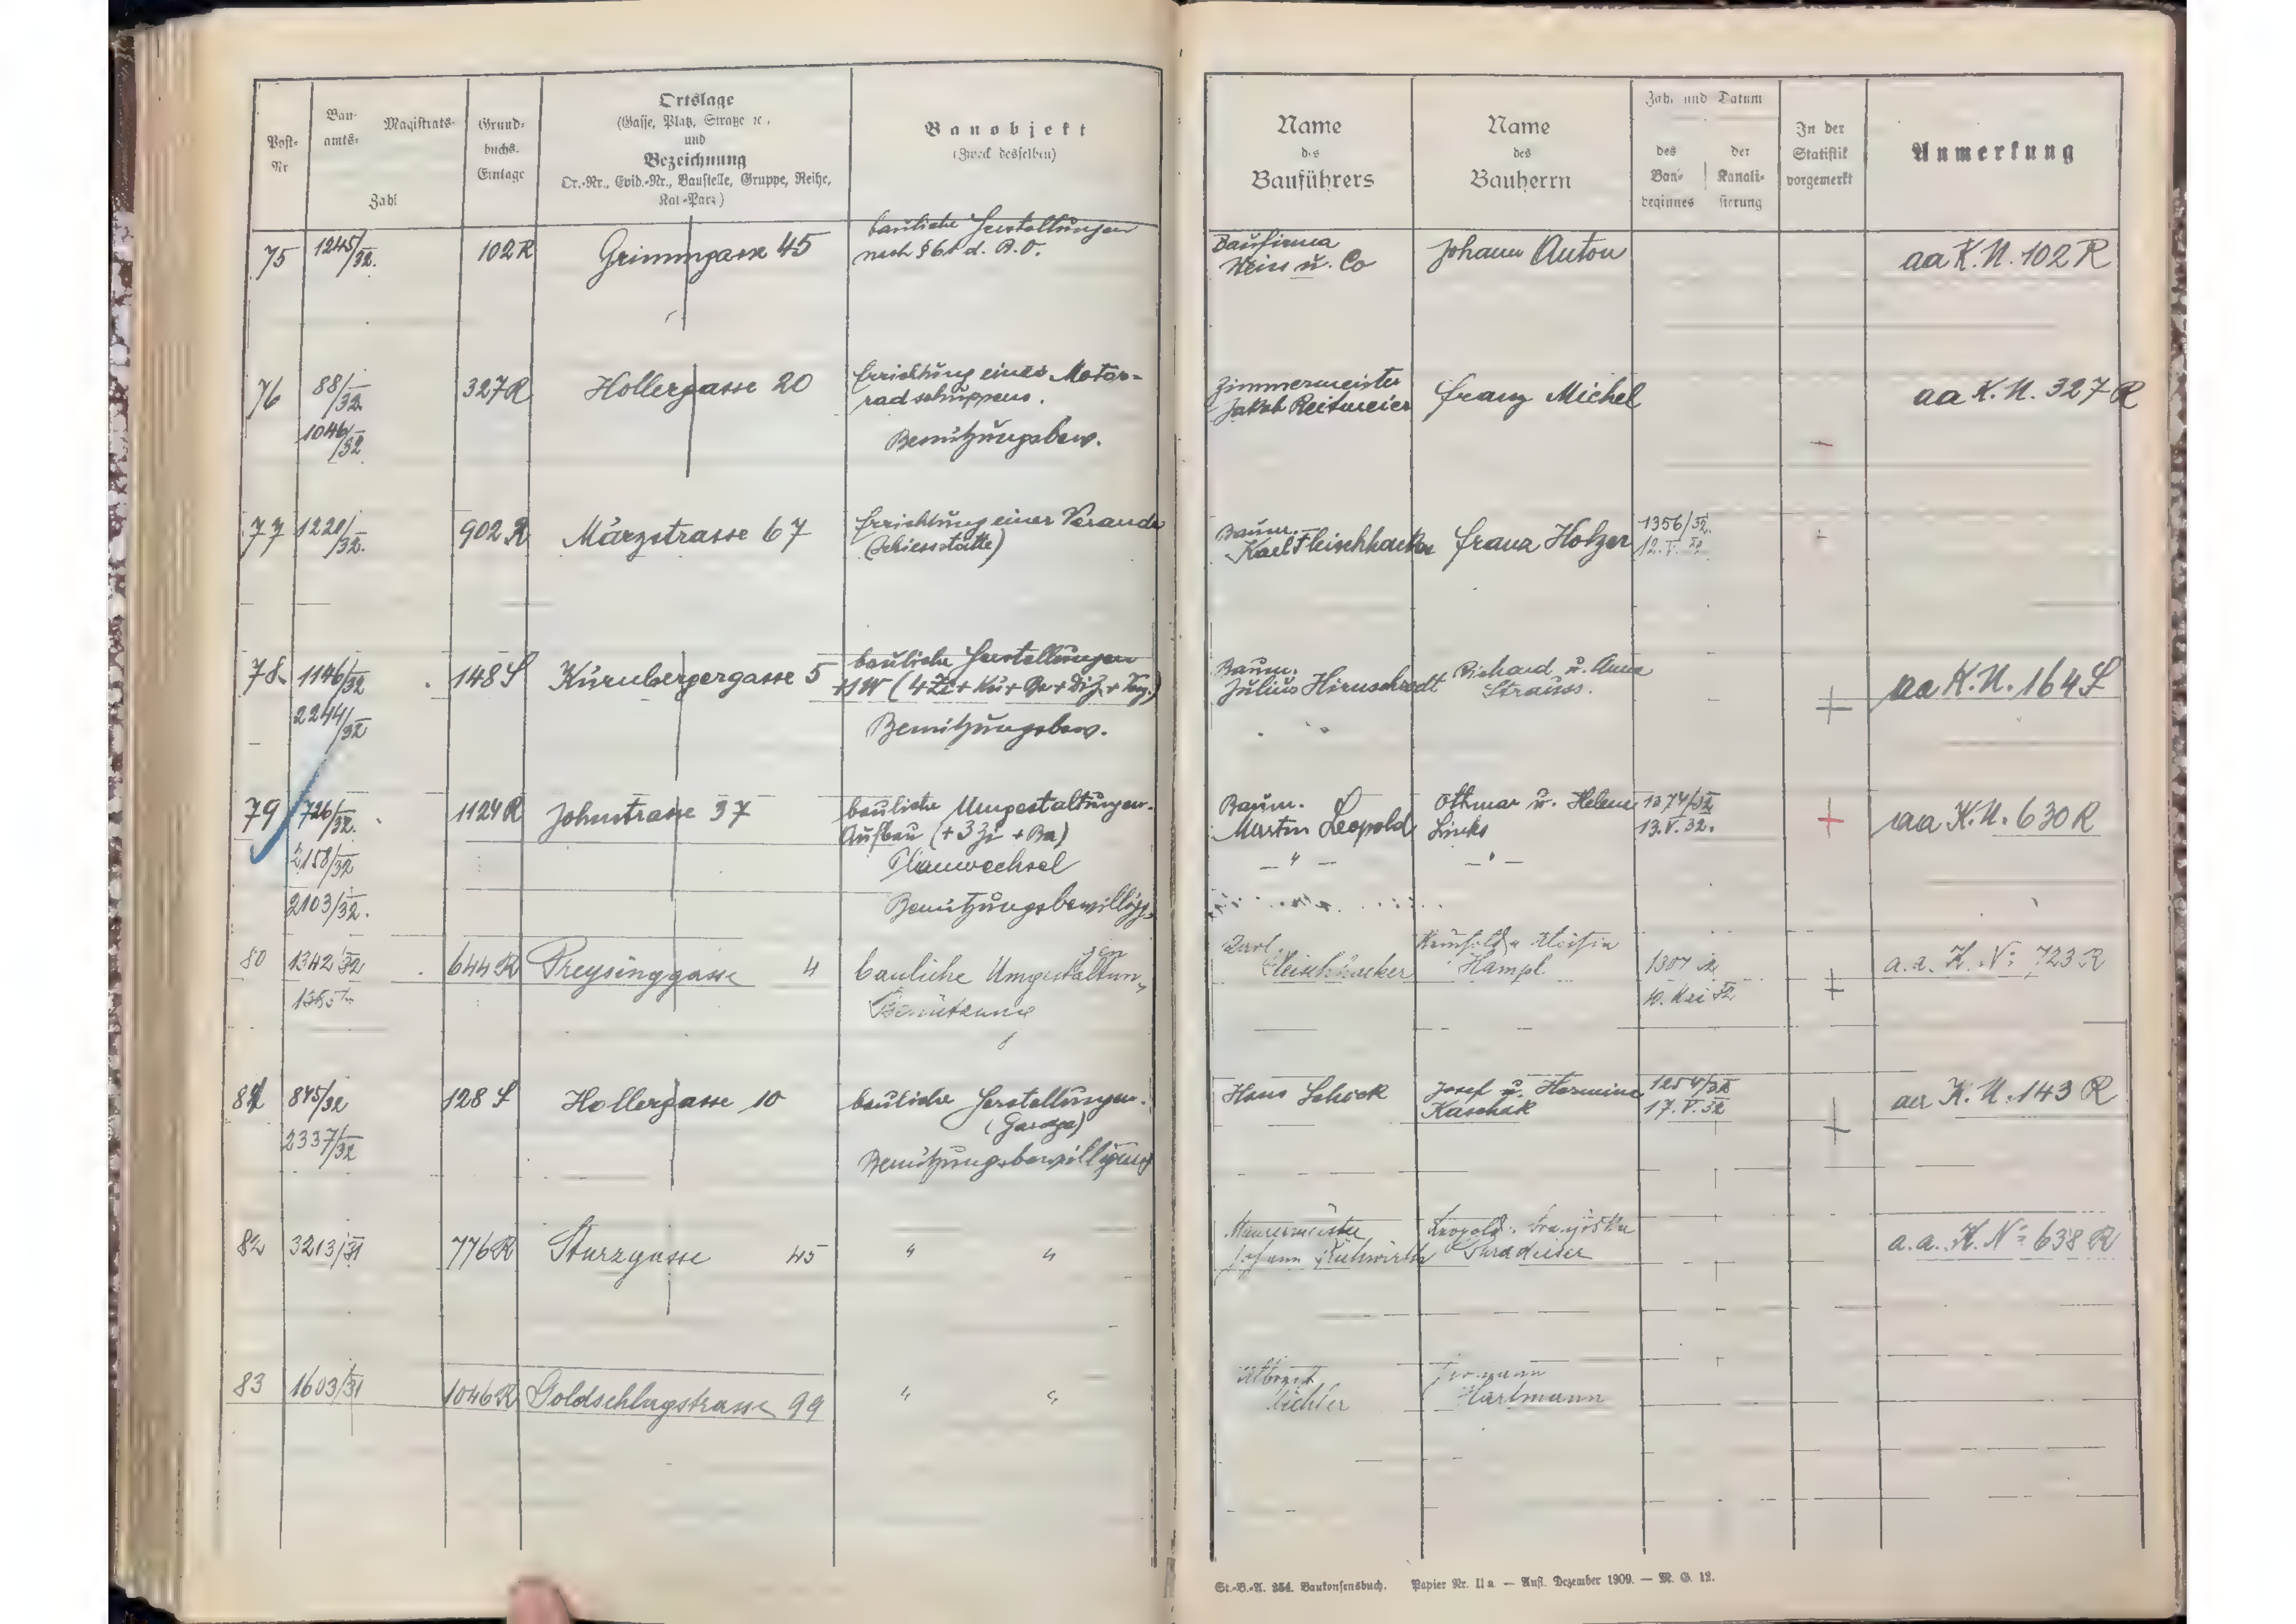 Post-
Nr
Bau-
amts-
Magistrats-
Zahl
Grund-
buchs-
Einlage
Ortslage
(Gasse, Platz, Straße ꝛc.,
und
Bezeichnung
Or.-Nr., Evid.-Nr., Baustelle, Gruppe, Reihe,
Kat.-Parz.)
Bauobjekt
(Zweck desselben)
Name
des
Bauführers
Name
des
Bauherrn
Zahl und Datum
des
Bau-
beginnes
der
Kanali-
sierung
In der
Statistik
vorgemerkt
Anmerkung
75 1245/32. 102R Grimmgasse 45
bauliche Herstellungen
nach §61 d. B.O.
Baufirma
Weiss u. Co
Johann Anton
aa K.N. 102 R
76 88/32. 327R Hollergasse 20
1046/32
Errichtung eines Motor-
radschuppens.
Benützungsbew.
Zimmermeister
Jakob Reitmeier
Franz Michel
aa K.N. 327 R
77 1221/32. 902 R Märzstrasse 67
Errichtung einer Veranda
(Schiessstätte)
Baum.
Karl Fleischhacker
Franz Holzer
1356/32.
12.V.32
78. 1146/32 148 S Kürnbergergasse 5
2244/32
bauliche Herstellungen
+1W (4Zi + Kü + Ba + Dz. + Vrg.)
Benützungsbew.
Baum.
Julius Hirnschrodt
Richard u. Anna
Strauss.
+
aa K.N. 164 S
79 726/32. 1124R Johnstrasse 37
2158/32
2103/32.
bauliche Umgestaltungen.
Aufbau (+3 Zi + Ba)
Planwechsel
Benützungsbewilligg.
Baum.
Martin Leopold
— " —
Othmar u. Helene
Links
— " —
1374/32
13.V.32.
+
aa K.N. 630 R
80 1342/32 644R Preysinggasse 4
bauliche Umgestaltun„
gen
Benützung
Karl
Fleischhacker
Hampl
1307/32
10. Mai 32
+
a.a. K. No 723 R
81 875/32 128 S Hollergasse 10
2337/32
bauliche Herstellungen.
(Garage)
Benützungsbewilligung
Hans Schock
Josef u. Hermine
Kaschak
1254/32
17.V.32
+
aa K.N. 143 R
82 3213/31 776R Sturzgasse 45 " "
Maurermeister
Johann Kühwirth
Leopold Franziska
a.a. K. No 638 R
83 1603/31 1046R Goldschlagstrasse 99 " "
Hartmann
St.-B.-A. 254. Baukonsensbuch. Papier Nr. II a — Aufl. Dezember 1909. — M. G. 12.